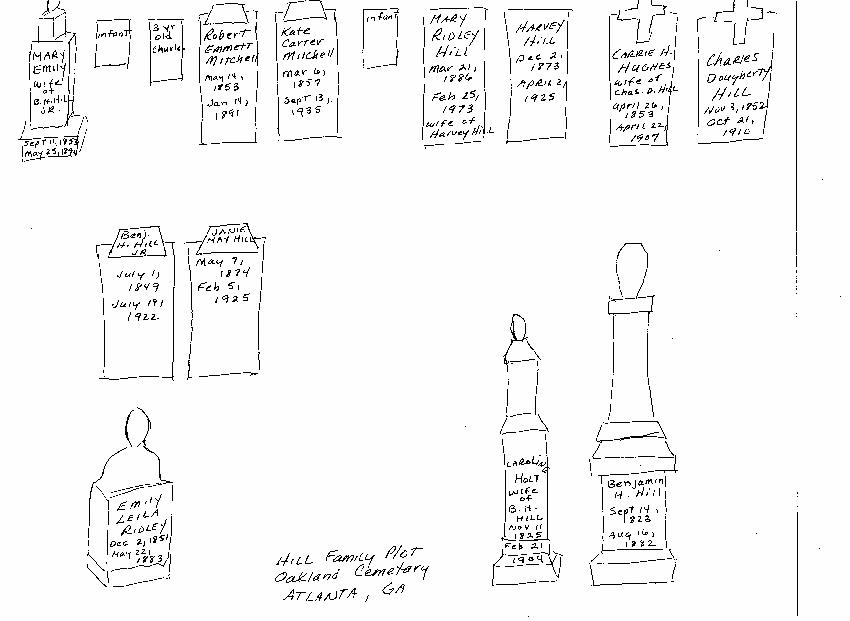 MARY
EMILY
wife
of
B.H. Hill
JR.
Sept 11, 1853
May 25, 1894
infant
3 yr
old
Charle
Robert
Emmett
Mitchell
May 14,
1853
Jan 14,
1891
Kate
Carter
Mitchell
Mar 6,
1857
Sept 13,
1935
infant
MARY
RIDLEY
HILL
Mar 21,
1886
Feb 25,
1973
wife of
Harvey Hill
HARVEY
HILL
Dec 2,
1873
APRIL 2,
1925
CARRIE H.
HUGHES
wife of
Chas. D. Hill
April 26,
1853
April 22,
1907
Charles
Dougherty
HILL
Nov 3, 1852
Oct 21,
1910
Benj.
H. HILL
JR
July 1,
1849
July 19,
1922
JANIE
MAY HILL
May 7,
1874
Feb 5,
1925
Emily
LEILA
RIDLEY
Dec 2, 1851
May 22,
1883
CAROLIN
HOLT
wife
of
B. H.
HILL
Nov 11
1825
Feb 21
1904
Benjamin
H. Hill
Sept 14,
1823
Aug 16,
1882
Hill Family Plot
Oakland Cemetery
ATLANTA, GA